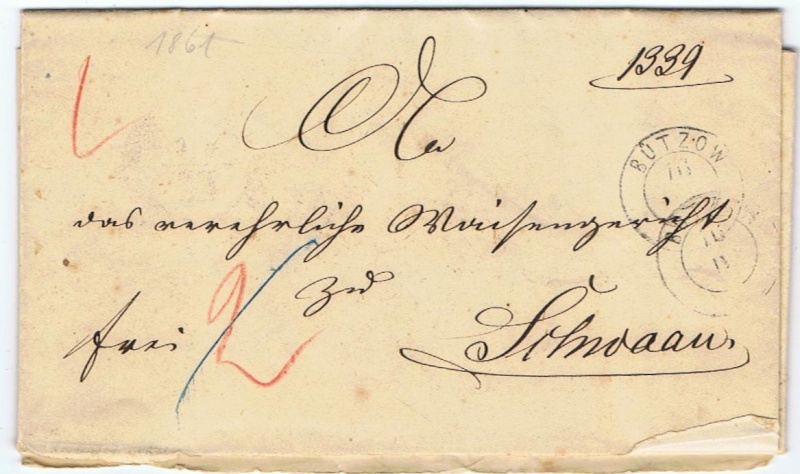 1861
1339
An
BÜTZOW
das verehrliche Waisengericht
zu
frei
2
Schwaan.